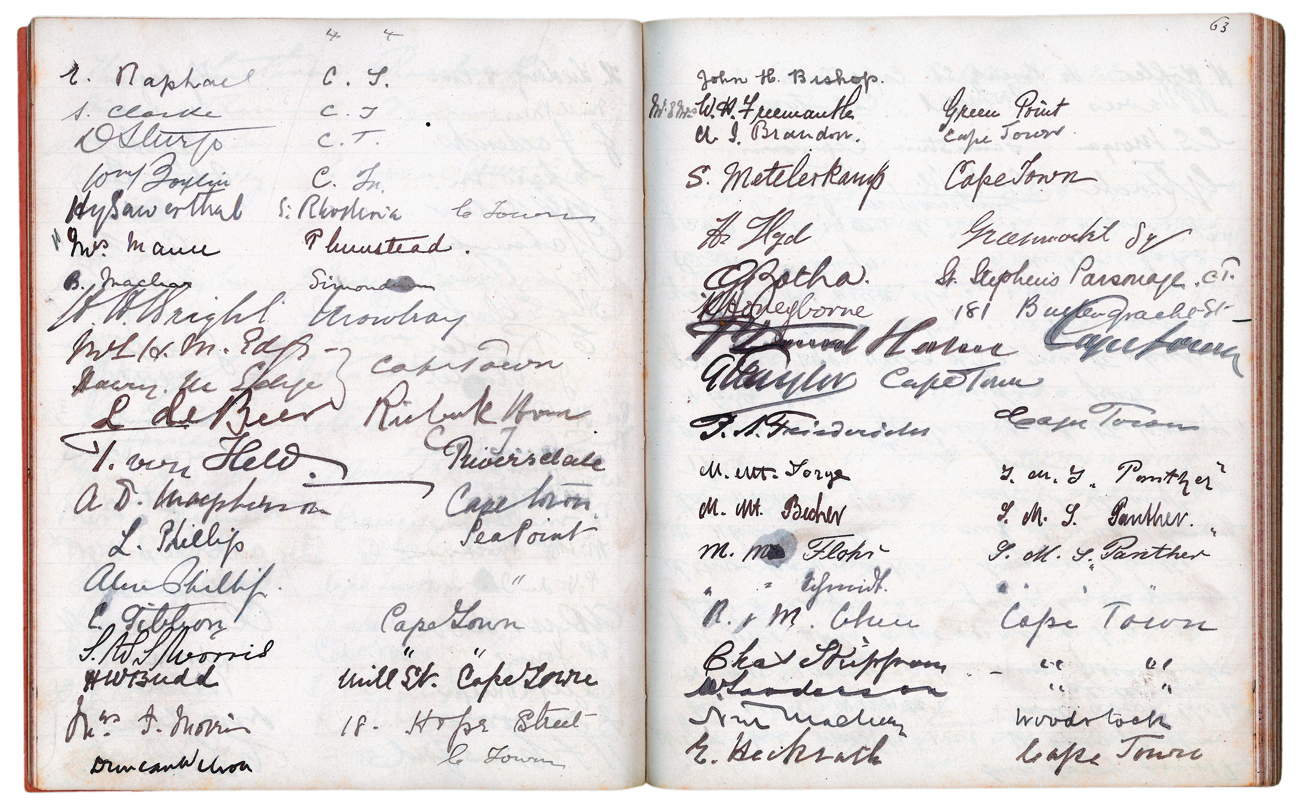 4 4
E. Raphael C. T.
S. Clarke C. T
D Sturp C. T.
Wm C. Tn.
Hy Sawerthal S. Rhodesia C Town
Mrs. Plumstead.
B. Simons
W. Wright Mowbray
Mrs H. M. Edge Cape Town
Harry M Edge
L de Beer Riebeek
T. von Held. Riversdale
A. D. Macpherson Cape Town
L. Phillip Sea Point
Alex Phillip. "
C. Tibbton Cape Town
S. W. S Morris " "
HW Budd Mill St. Cape Town
Mrs J. Morris 18. Hope Street
Duncan Wilson C Town
63
John H. Bishop.
Mr & Mrs W. H. Freemantle Green Point
A I. Brandon. Cape Town
S. Metelerkamp Cape Town
H. Hyd Greenmarkt Sq
C Botha. St. Stephens Parsonage. C.T.
Honeyborne 181 Buitengracht St
Cape Town
Taylor Cape Town
Friederichs Cape Town
M. Mt. Sorge S. M. S. Panther"
M. Mt. Becher S. M. S. Panther."
M. Flohr S. M. S. "Panther"
" " Schmidt. " " "
R. M. Cape Town
Chas Skippon " "
W. Sanderson " "
Woodstock
E. Heckrath Cape Town